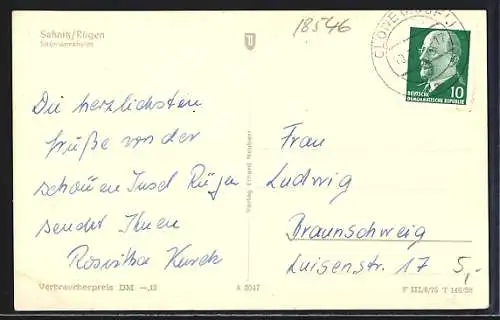 Saßnitz/Rügen
Seemannsheim
18546
10
DEUTSCHE
DEMOKRATISCHE REPUBLIK
Die herzlichsten
Grüße von der
schönen Insel Rügen
sendet Ihnen
Roswitha
Verlag Erhard Neubert
Frau
Ludwig
Braunschweig
Luisenstr. 17
5,-
Verbraucherpreis DM -,15
A 2047